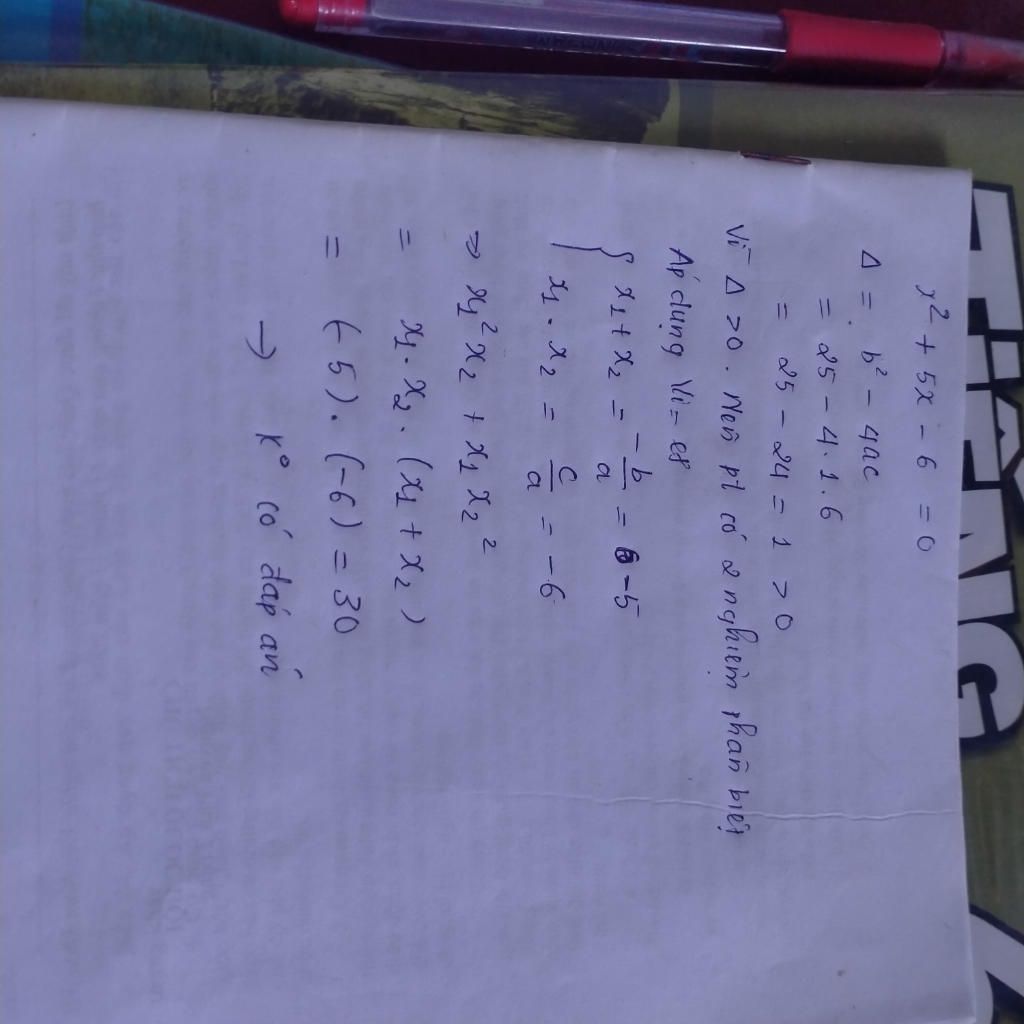 x² + 5x - 6 = 0
Δ = b² - 4ac
= 25 - 4.1.6
= 25 - 24 = 1 > 0
Vì Δ > 0. Nên pt có 2 nghiệm phân biệt
Áp dụng Vi-et
{ x₁ + x₂ = -b/a = -5
x₁ . x₂ = c/a = -6
⇒ x₁²x₂ + x₁x₂²
= x₁.x₂.(x₁ + x₂)
= (-5).(-6) = 30
→ K° có đáp án